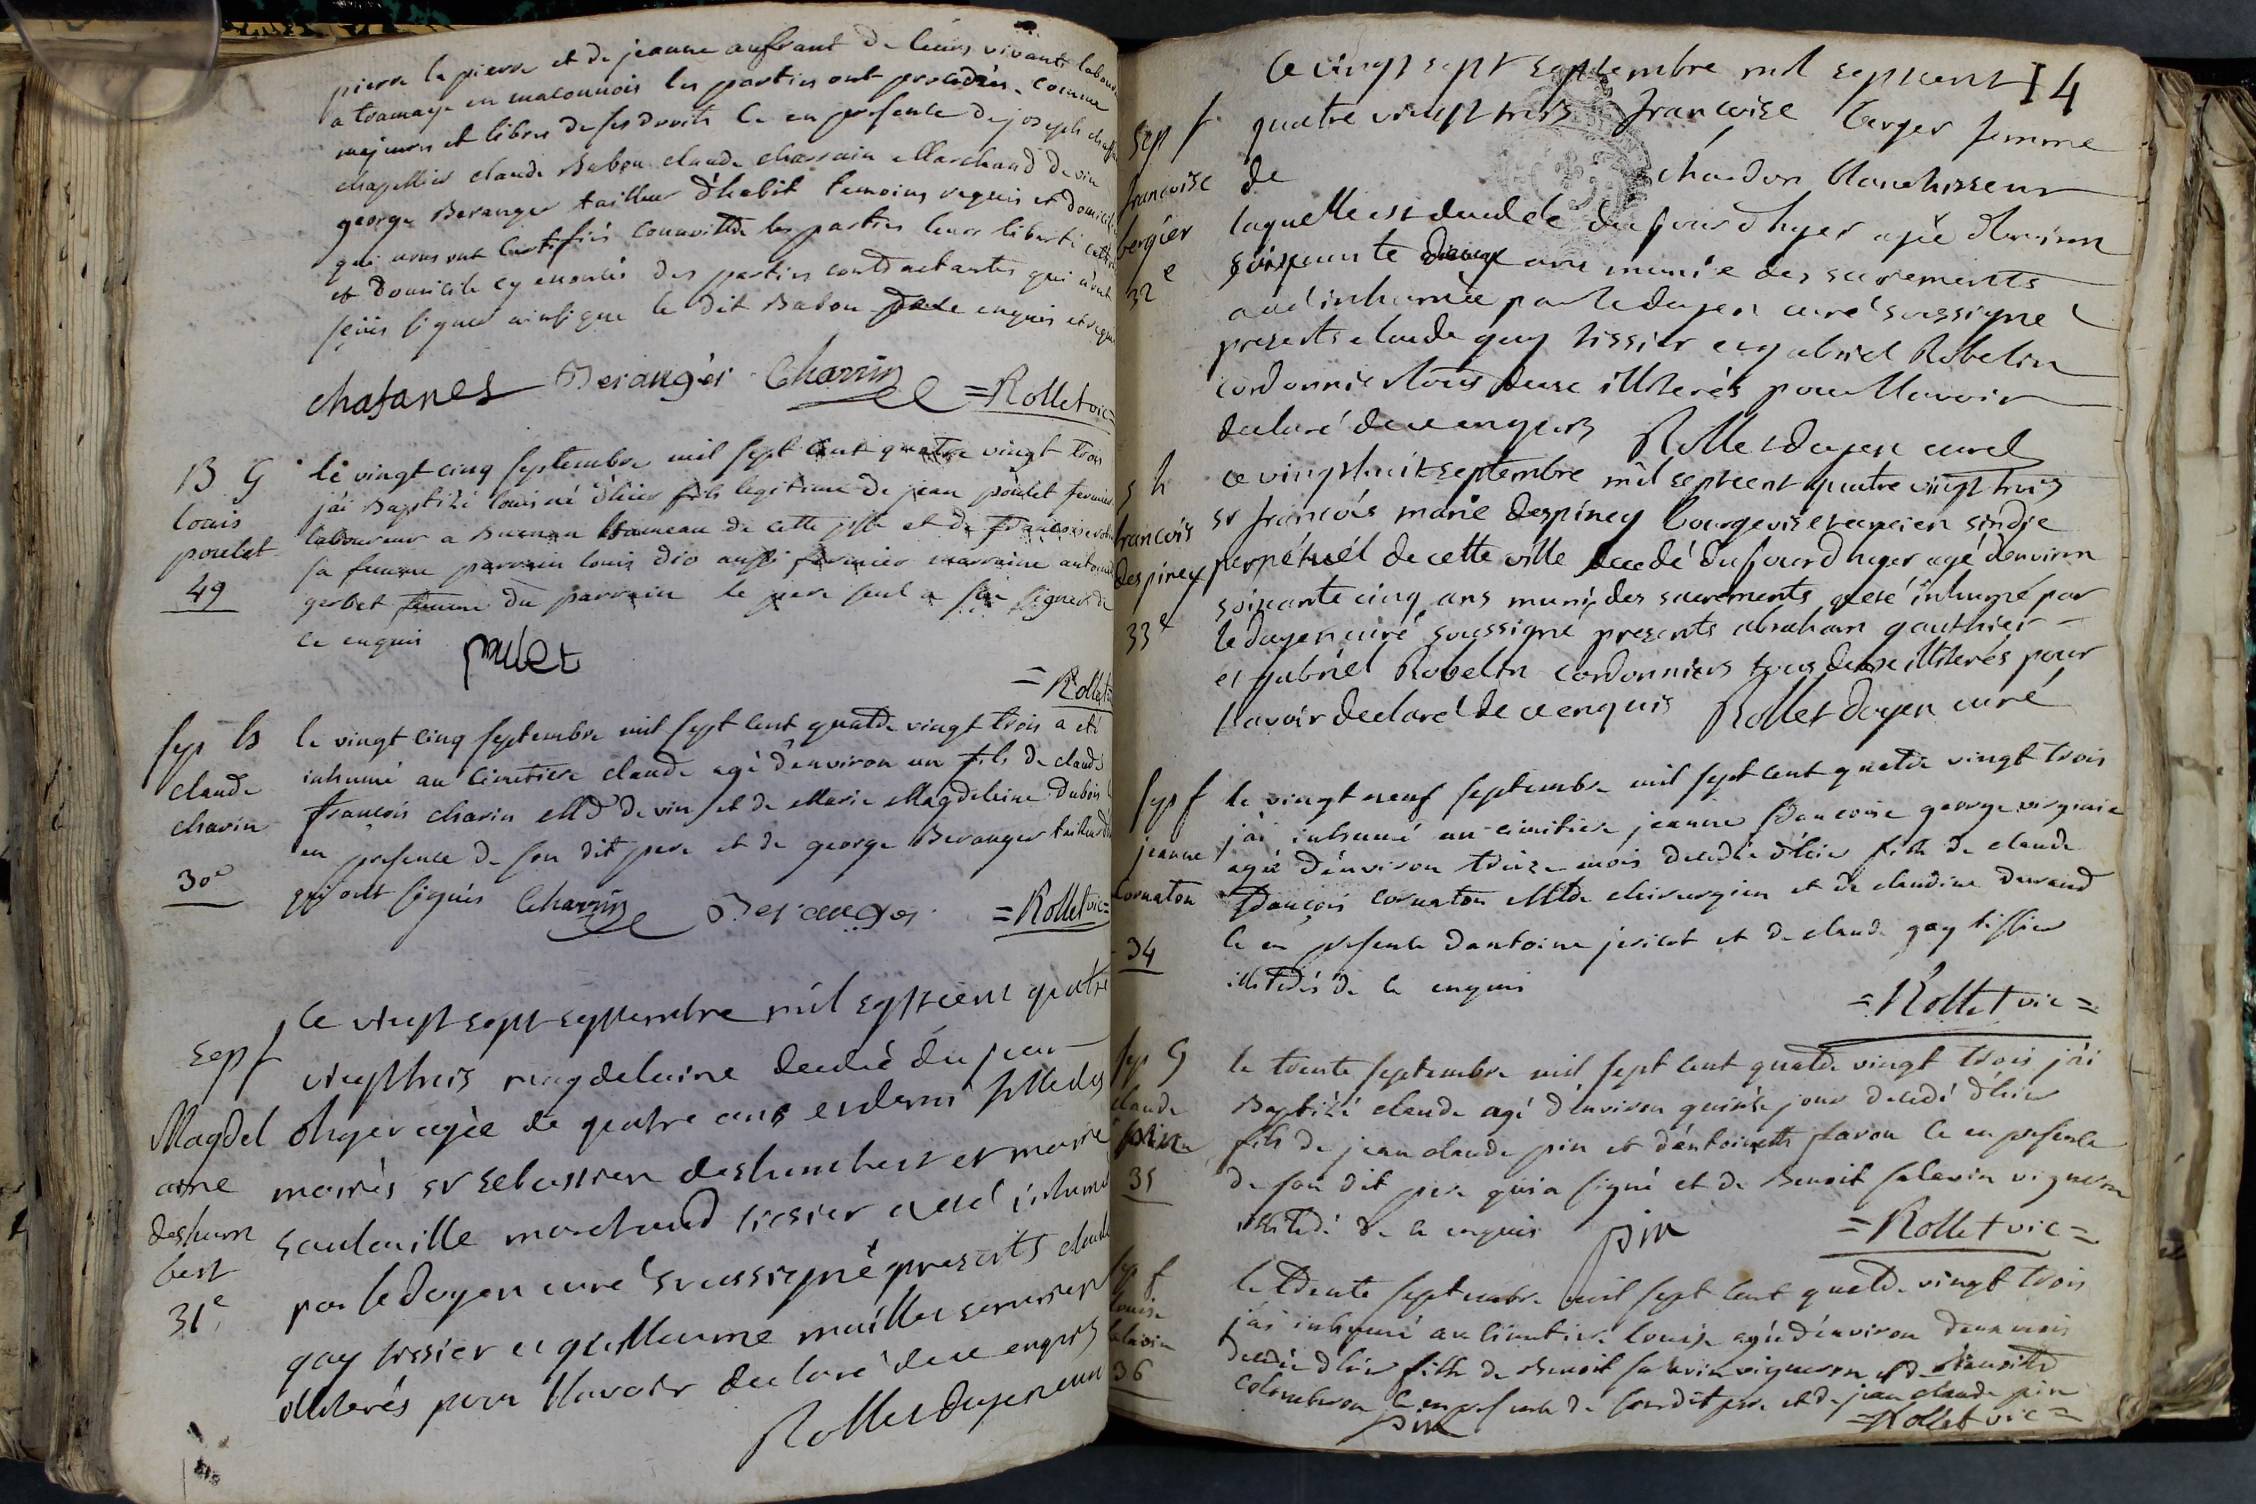 pierre la pierre et de jeanne aufrant de leurs vivants labour
a tramaye en maconnois les parties ont procedées comme
majeurs et libres de ses droits ce en presence de joseph
chapellier claude Babou claude charrain Marchand de vin
george Beranger tailleur d'habit temoins requis et domicil
qui nous ont certifiés connoitre les parties leurs liberté
et domicile cy enoncés des parties contractantes qui
signer ainsi que le dit Babou de ce enquis et requis
chafanel Beranger Charrin =Rollet vic=
B G
louis
poulet
49
le vingt cinq septembre mil sept cent quatre vingt trois
j'ai Baptizé louis né d'hier fils legitime de jean poulet fermier
laboureur a hameau de cette psse et de francoise
sa femme parrain louis dio aussi fermier marraine antoinet
gerbet femme du parrain le pere seul a sçu signer de
ce enquis poulet
=Rollet
sep G
claude
charin
30e
le vingt cinq septembre mil sept cent quatre vingt trois a eté
inhumé au cimetiere claude agé d'environ un fils de claude
francois charin Md de vin et de Marie Magdeleine Dubois
en presence de son dit pere et de george Beranger tailleur
qui ont signés Charrin Beranger =Rollet vic=
sep f
Magdel
aine
deshum
bert
31e
ce vingt sept septembre mil septcent quatre
vingttrois magdelaine decedée du jour
dhyer agée de quatre ans et demi fille des
mariés sr sebastien deshumbert et marie
marchand tissier a eté inhumé
par le doyen curé soussigné presents claude
gay tissier et guillaume
illiterés pour l'avoir declaré de ce enquis
Rollet doyen curé
14
sep f
francoise
bergier
32e
ce vingt sept septembre mil septcent
quatre vingt trois francoise berger femme
de chardon blanchisseur
laquelle est decedée du jour dhyer agée denviron
soixante deux ans munie des sacrements
a eté inhumée par le doyen curé soussigné
presents claude gay tissier et gabriel Robelin
cordonnier tous deux illiterés pour l'avoir
declaré de ce enquis Rollet doyen curé
s h
francois
despiney
33e
ce vingt huit septembre mil septcent quatre vingt trois
sr francois marie despiney bourgeois et ancien sindic
perpétuél de cette ville decedé du jour d hyer agé denviron
soixante cinq ans muni des sacrements a eté inhumé par
le doyen curé soussigné presents abraham gauthier
et gabriel Robelin cordonniers tous deux illiterés pour
lavoir declaré de ce enquis Rollet doyen curé
sep f
jeanne
cornaton
34
le vingt neuf septembre mil sept cent quatre vingt trois
j'ai inhumé au cimitiere jeanne francoise george virginie
agée d'environ treize mois decedée d'hier fille de claude
francois cornaton Mtre chirurgien et de claudine durand
ce en presence d'antoine jericot et de claude gay tissier
illiterés de ce enquis
=Rollet vic=
sep G
claude
pin
35
le trente septembre mil sept cent quatre vingt trois j'ai
Baptizé claude agé d'environ quinze jours decedé d'hier
fils de jean claude pin et d'antoinette favon ce en presence
de son dit pere qui a signé et de Benoit salavin vigneron
illiteré de ce enquis pin =Rollet vic=
sep f
louise
salavin
36
le trente septembre mil sept cent quatre vingt trois
j'ai inhumé au cimitiere louise agée d'environ deux mois
decedée d'hier fille de Benoit salavin vigneron et de
colombron ce en presence de son dit pere et de jean claude pin
pin =Rollet vic=